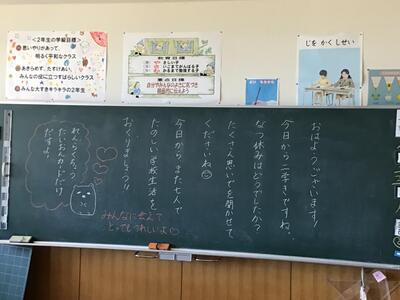 ＜2年生の学級目標＞
思いやりがあって、
明るく平和なクラス
あきらめず、たすけあい、
みんなの役に立つすばらしいクラス
みんな大すきキラキラの2年生
教育目標
重点目標
じを かく しせい
おはようございます！
今日から二学きですね。
なつ休みはどうでしたか？
たくさん思いでを聞かせて
くださいね
今日からまた七人で
たのしい学校生活を
おくりましょう!!
れんらくぶくろ
たいおんカードだけ
だすよ。
みんなに会えて
とってもうれしいよ♡